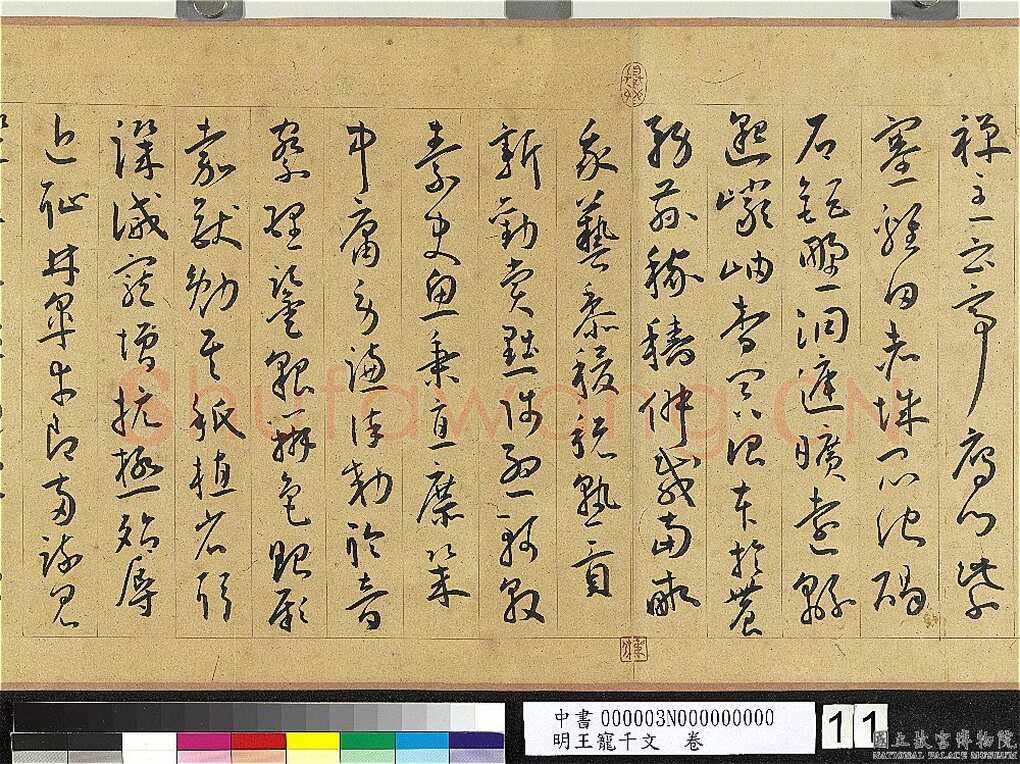 禪主云亭雁門紫
塞雞田赤城昆池碣
石鉅野洞庭曠遠綿
邈巖岫杳冥治本於農
務茲稼穡俶載南畝
我藝黍稷稅熟貢
新勸賞黜陟孟軻敦
素史魚秉直庶幾
中庸勞謙謹敕聆音
察理鑒貌辨色貽厥
嘉猷勉其祗植省躬
譏誡寵增抗極殆辱
近恥林皋幸即兩疏見
Shufawang.CN
中書000003N000000000
明王寵千文 卷
11
國立故宮博物院
NATIONAL PALACE MUSEUM